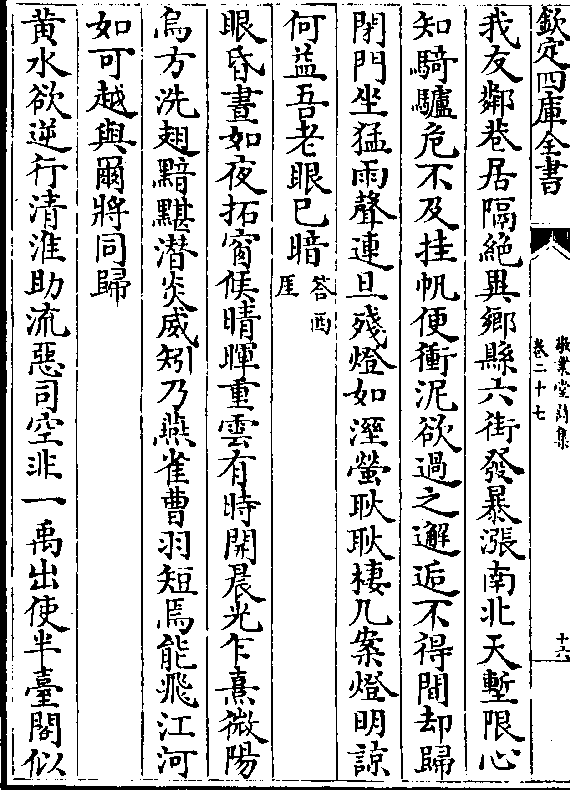 欽定四庫全書
敬業堂詩集
卷二十七
十六
我友鄰巷居隔絶異鄉縣六街發暴漲南北天塹限心
知騎驢危不及挂帆便衝泥欲過之邂逅不得間却歸
閉門坐猛雨聲連旦殘燈如溼螢耿耿棲几案燈明諒
何益吾老眼已暗答西厓
眼昏晝如夜拓窗候晴暉重雲有時開晨光乍熹微陽
烏方洗翅黯黮潜炎威矧乃燕雀曹羽短焉能飛江河
如可越與爾將同歸
黄水欲逆行清淮助流惡司空非一禹出使半臺閣似